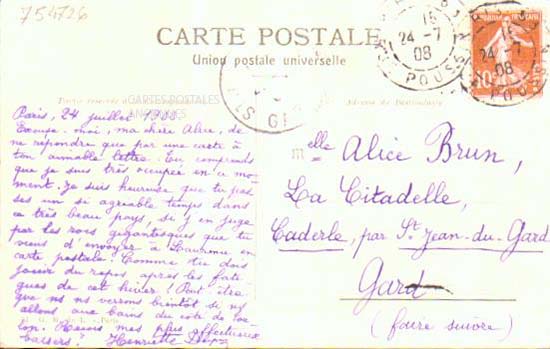 754726
CARTE POSTALE
Union postale universelle
CARTES POSTALES
ANCIENNES
15
24 -7
08
Paris, 24 juillet 1908
Excuse-moi, ma chère Alice, de
ne répondre que par une carte à
ton aimable lettre. Tu comprends
que je suis très occupée en ce mo-
ment. Je suis heureuse que tu pas-
ses un si agréable temps dans
ce très beau pays, si j'en juge
par les rocs gigantesques que tu
viens d'envoyer à Laurence en
carte postale. Comme tu dois
jouir du repos après les fati-
gues de cet hiver! Peut être
que ns ns verrons bientôt si ns
allons aux bains du côté de
Reçois mes plus affectueux
baisers! Henriette
Melle Alice Brun,
La Citadelle,
Caderle, par St Jean-du-Gard
Gard
(faire suivre)